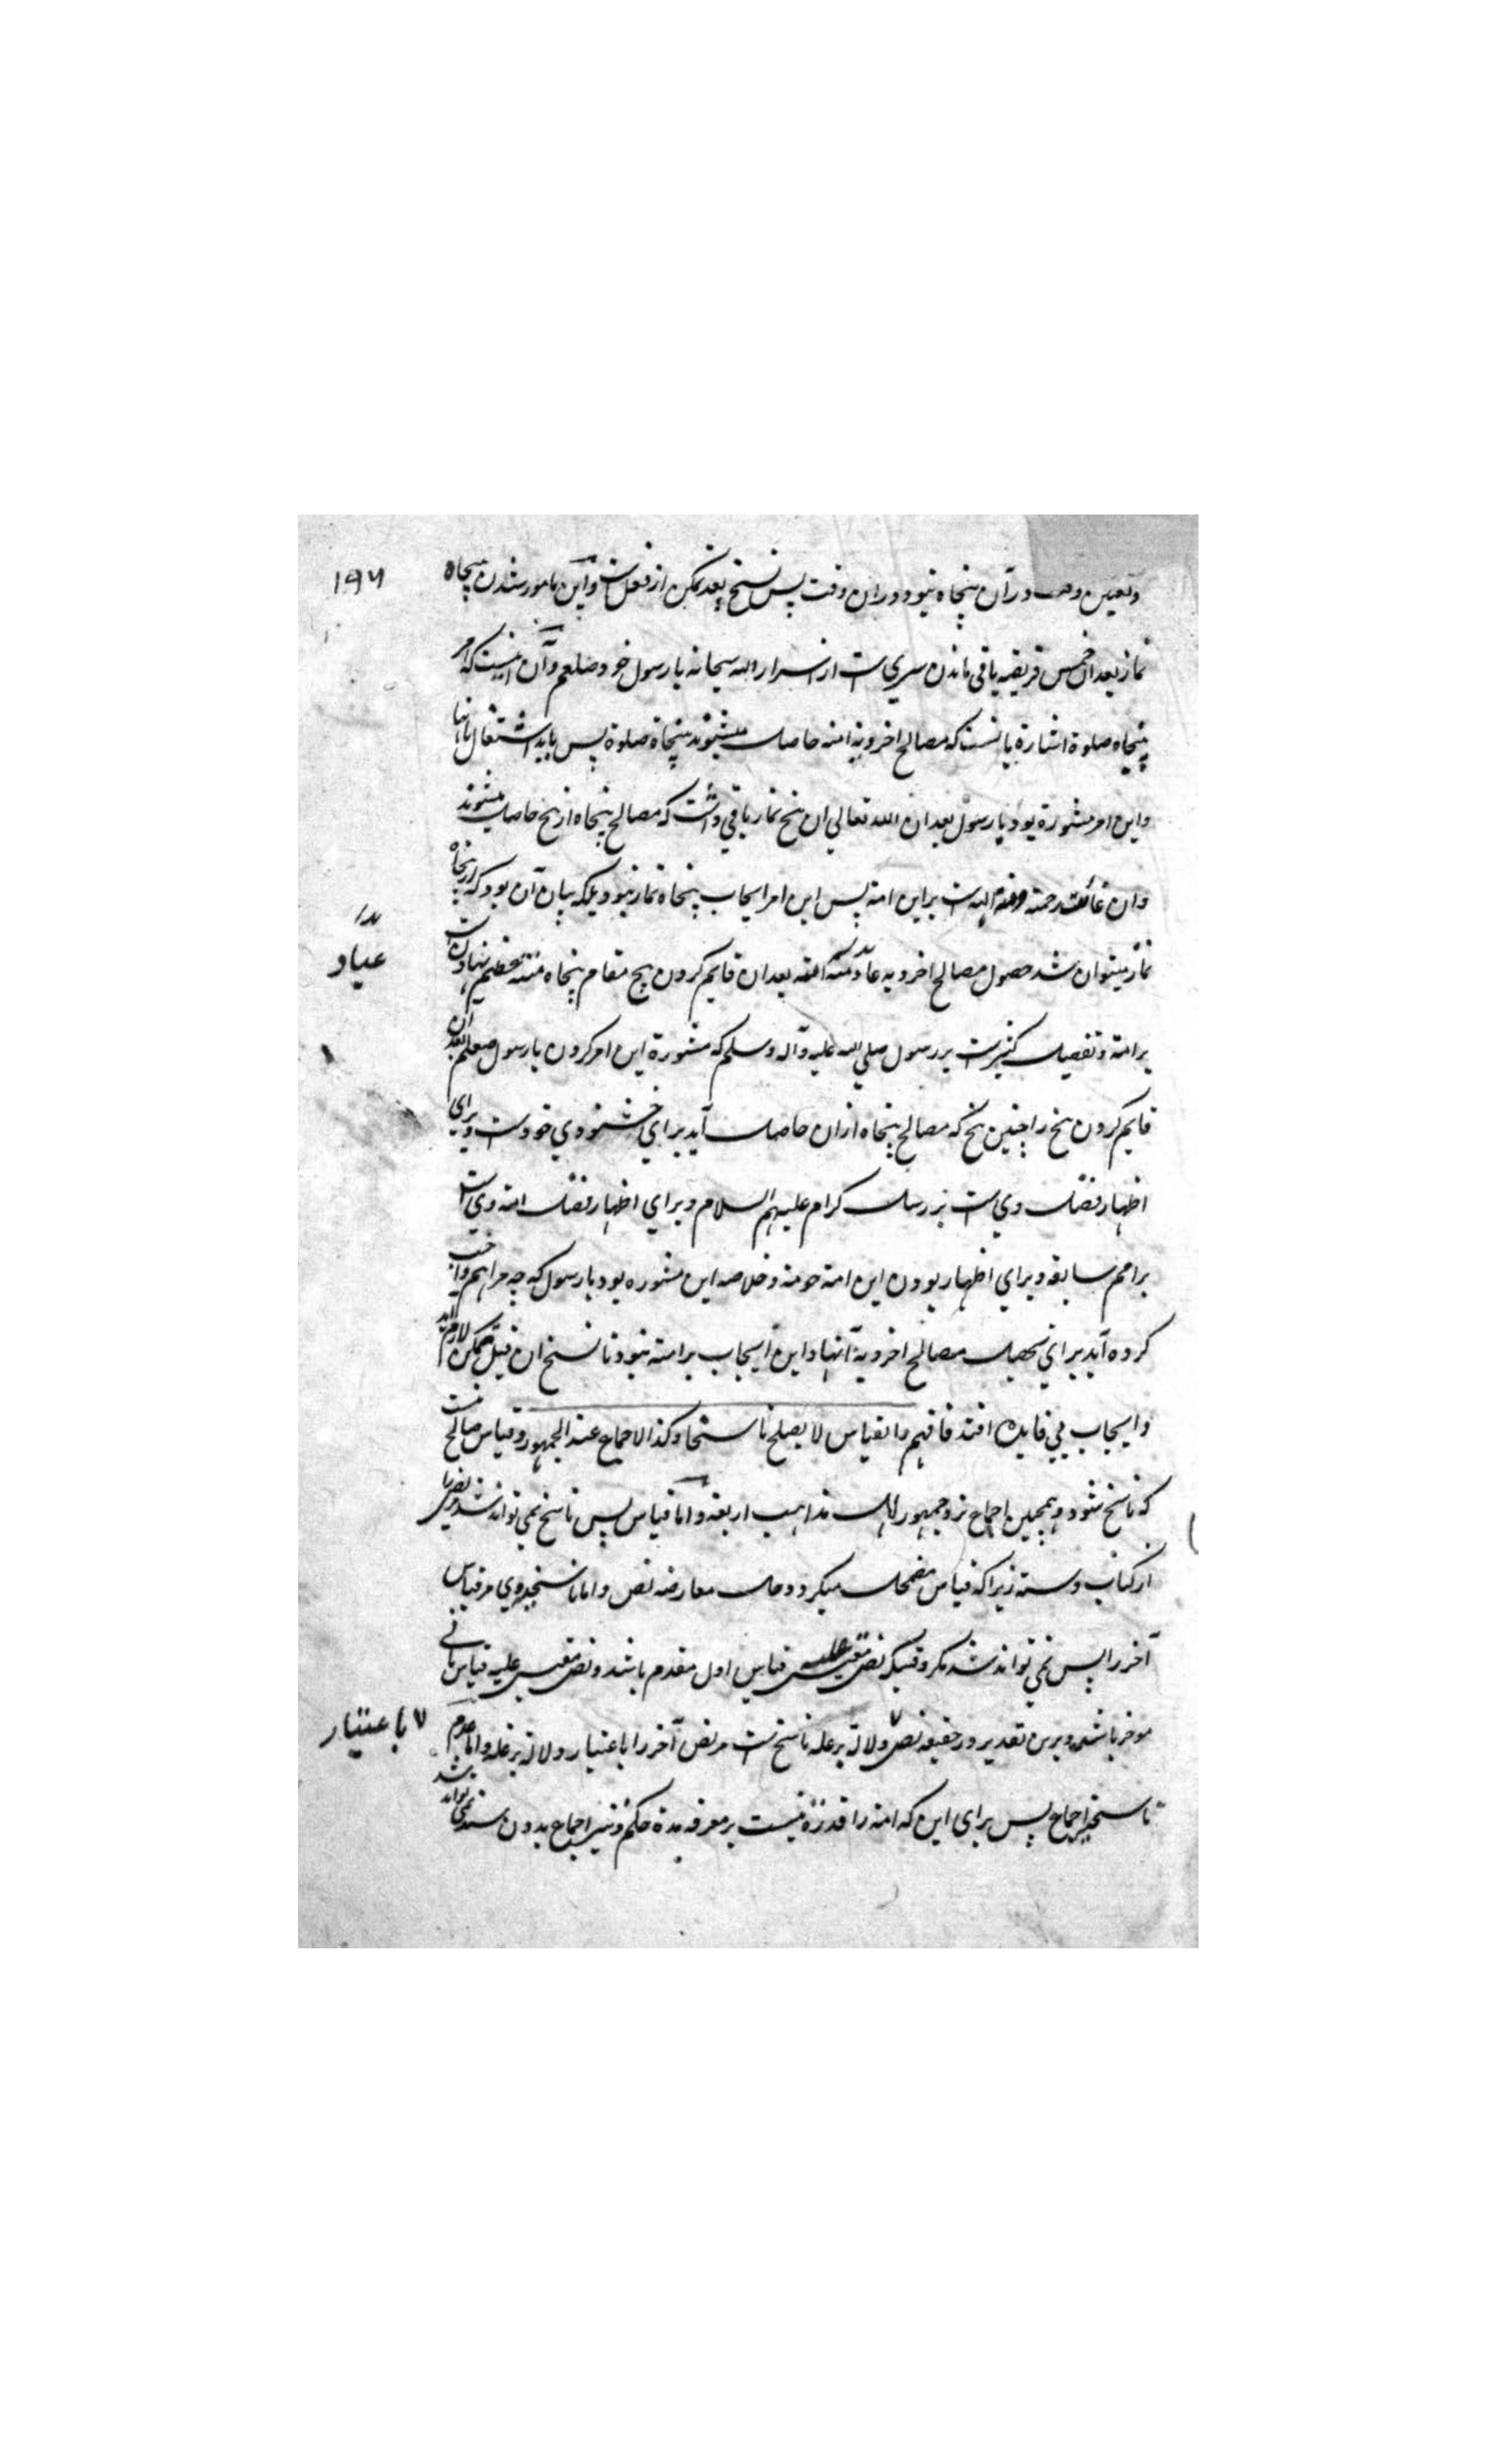 ۱۹۷
وتعین وقت در آن پنجاه نبود در ان وقت پس نسخ بعد تمکن از فعل است واین مامور شدن پنجاه
نماز بعد ان خمس فریضه باقی ماندن سری است از اسرار الله سبحانه با رسول خود صلعم وآن اینست که امر
پنجاه صلوة اشارة بانست که مصالح اخرویة امته حاصل میشوند پنجاه صلوة پس باید اشتغال بانها
واین امر مشورة بود با رسول بعد ان الله تعالی ان پنج نماز باقی داشت که مصالح پنجاه از پنج حاصل میشوند
وان غائت رحمته الله است براین امته پس این امر ایجاب پنجاه نماز نبود بلکه بیان آن بود که از پنجاه
نماز میتوان شد حصول مصالح اخرویه بعد ان قایم کردن پنج مقام پنجاه منته عظیم نهادن است
عباد
برامته وتفضیل کثیر است بر رسول صلی الله علیه وآله وسلم که مشورة این امر کردن با رسول صلعم بعد ان
قایم کردن پنج را چنین پنج که مصالح پنجاه ازان حاصل آید برای خشنودی خود است وبرای
اظهار فضل وی است بر رسل کرام علیهم السلام وبرای اظهار فضل امته وی است
برامم سابقه وبرای اظهار بودن این امته مرحومته وخلاصه این مشوره بود با رسول که چه مراهم واجب
کرده آید برای تحصیل مصالح اخرویة آنها واین ایجاب برامته نبود تا نسخ ان قبل تمکن لازم آید
وایجاب بی فایده افتد فافهم والقیاس لا یصلح ناسخا وکذا الاجماع عند الجمهور وقیاس صالح نیست
که ناسخ شود وهمچنین اجماع نزد جمهور اهل مذاهب اربعه واما قیاس پس ناسخ نمی تواند شد نص را
از کتاب وسنته زیرا که قیاس مضمحل میگردد معارضه نص واما ناسخیة وی مر قیاس
آخر را پس نمی تواند شد مگر وقتیکه نص مقیس علیه قیاس اول مقدم باشد ونص مقیس علیه قیاس ثانی
موخر باشد وبرین تقدیر در حقیقة نص ودلالة برعلة ناسخ است مر نص آخر را باعتبار دلالة برعلة واما عدم
۷ باعتبار
ناسخیة اجماع پس برای این که امته را قدرة نیست بر معرفه مدة حکم ونیز اجماع بدون سند نمی تواند شد